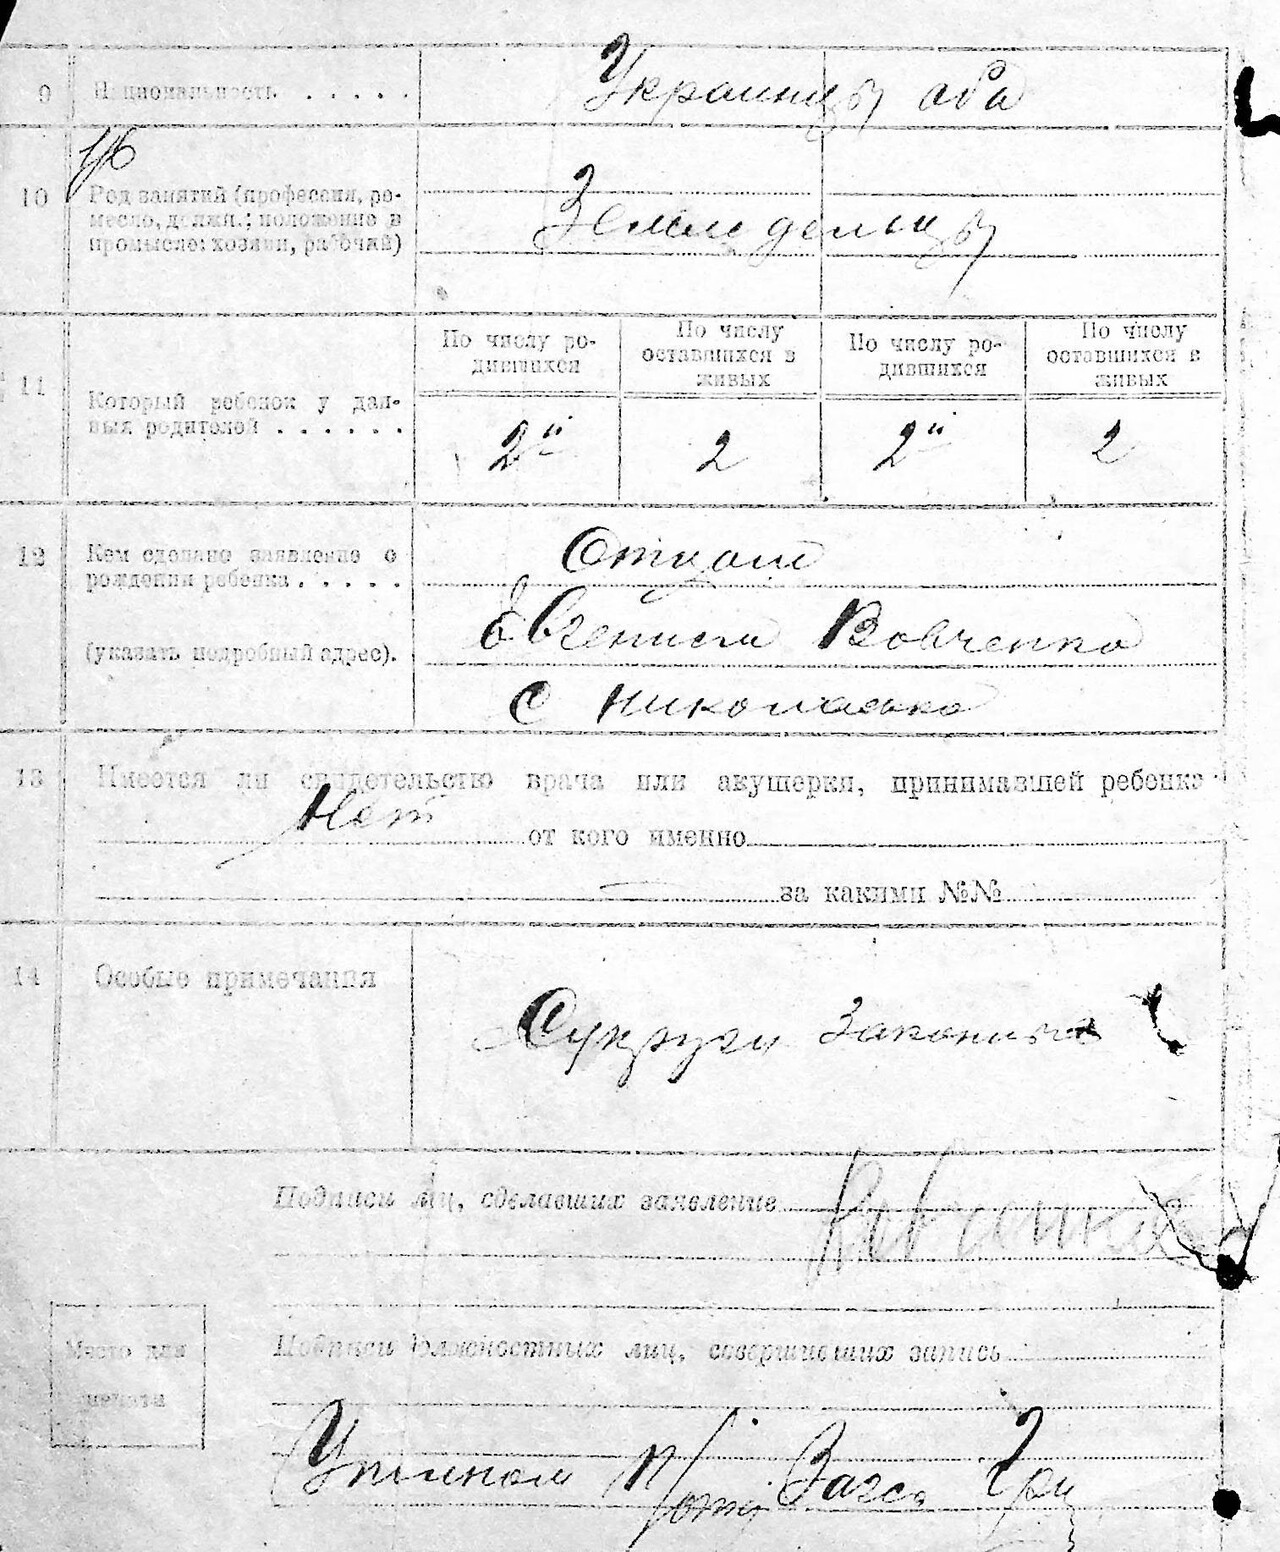 9 Национальность . . . . .
Украинцы оба
10 Род занятий (профессия, ре-
месло, должн.; положение в
промысле: хозяин, рабочий)
Земледельцы
По числу ро-
дившихся
По числу
оставшихся в
живых
По числу ро-
дившихся
По числу
оставшихся в
живых
11 Который ребенок у дан-
ных родителей . . . . . .
2й 2 2й 2
12 Кем сделано заявление о
рождении ребенка . . . . .
(указать подробный адрес).
Отцом
Евгением Вовченко
с Николаевка
13 Имеется ли свидетельство врача или акушерки, принимавшей ребенка
Нет от кого именно
за какими №№
14 Особые примечания
Супруги законные
Подписи лиц, сделавших заявление
Подписи должностных лиц, совершивших запись
Место для
печати
Загса